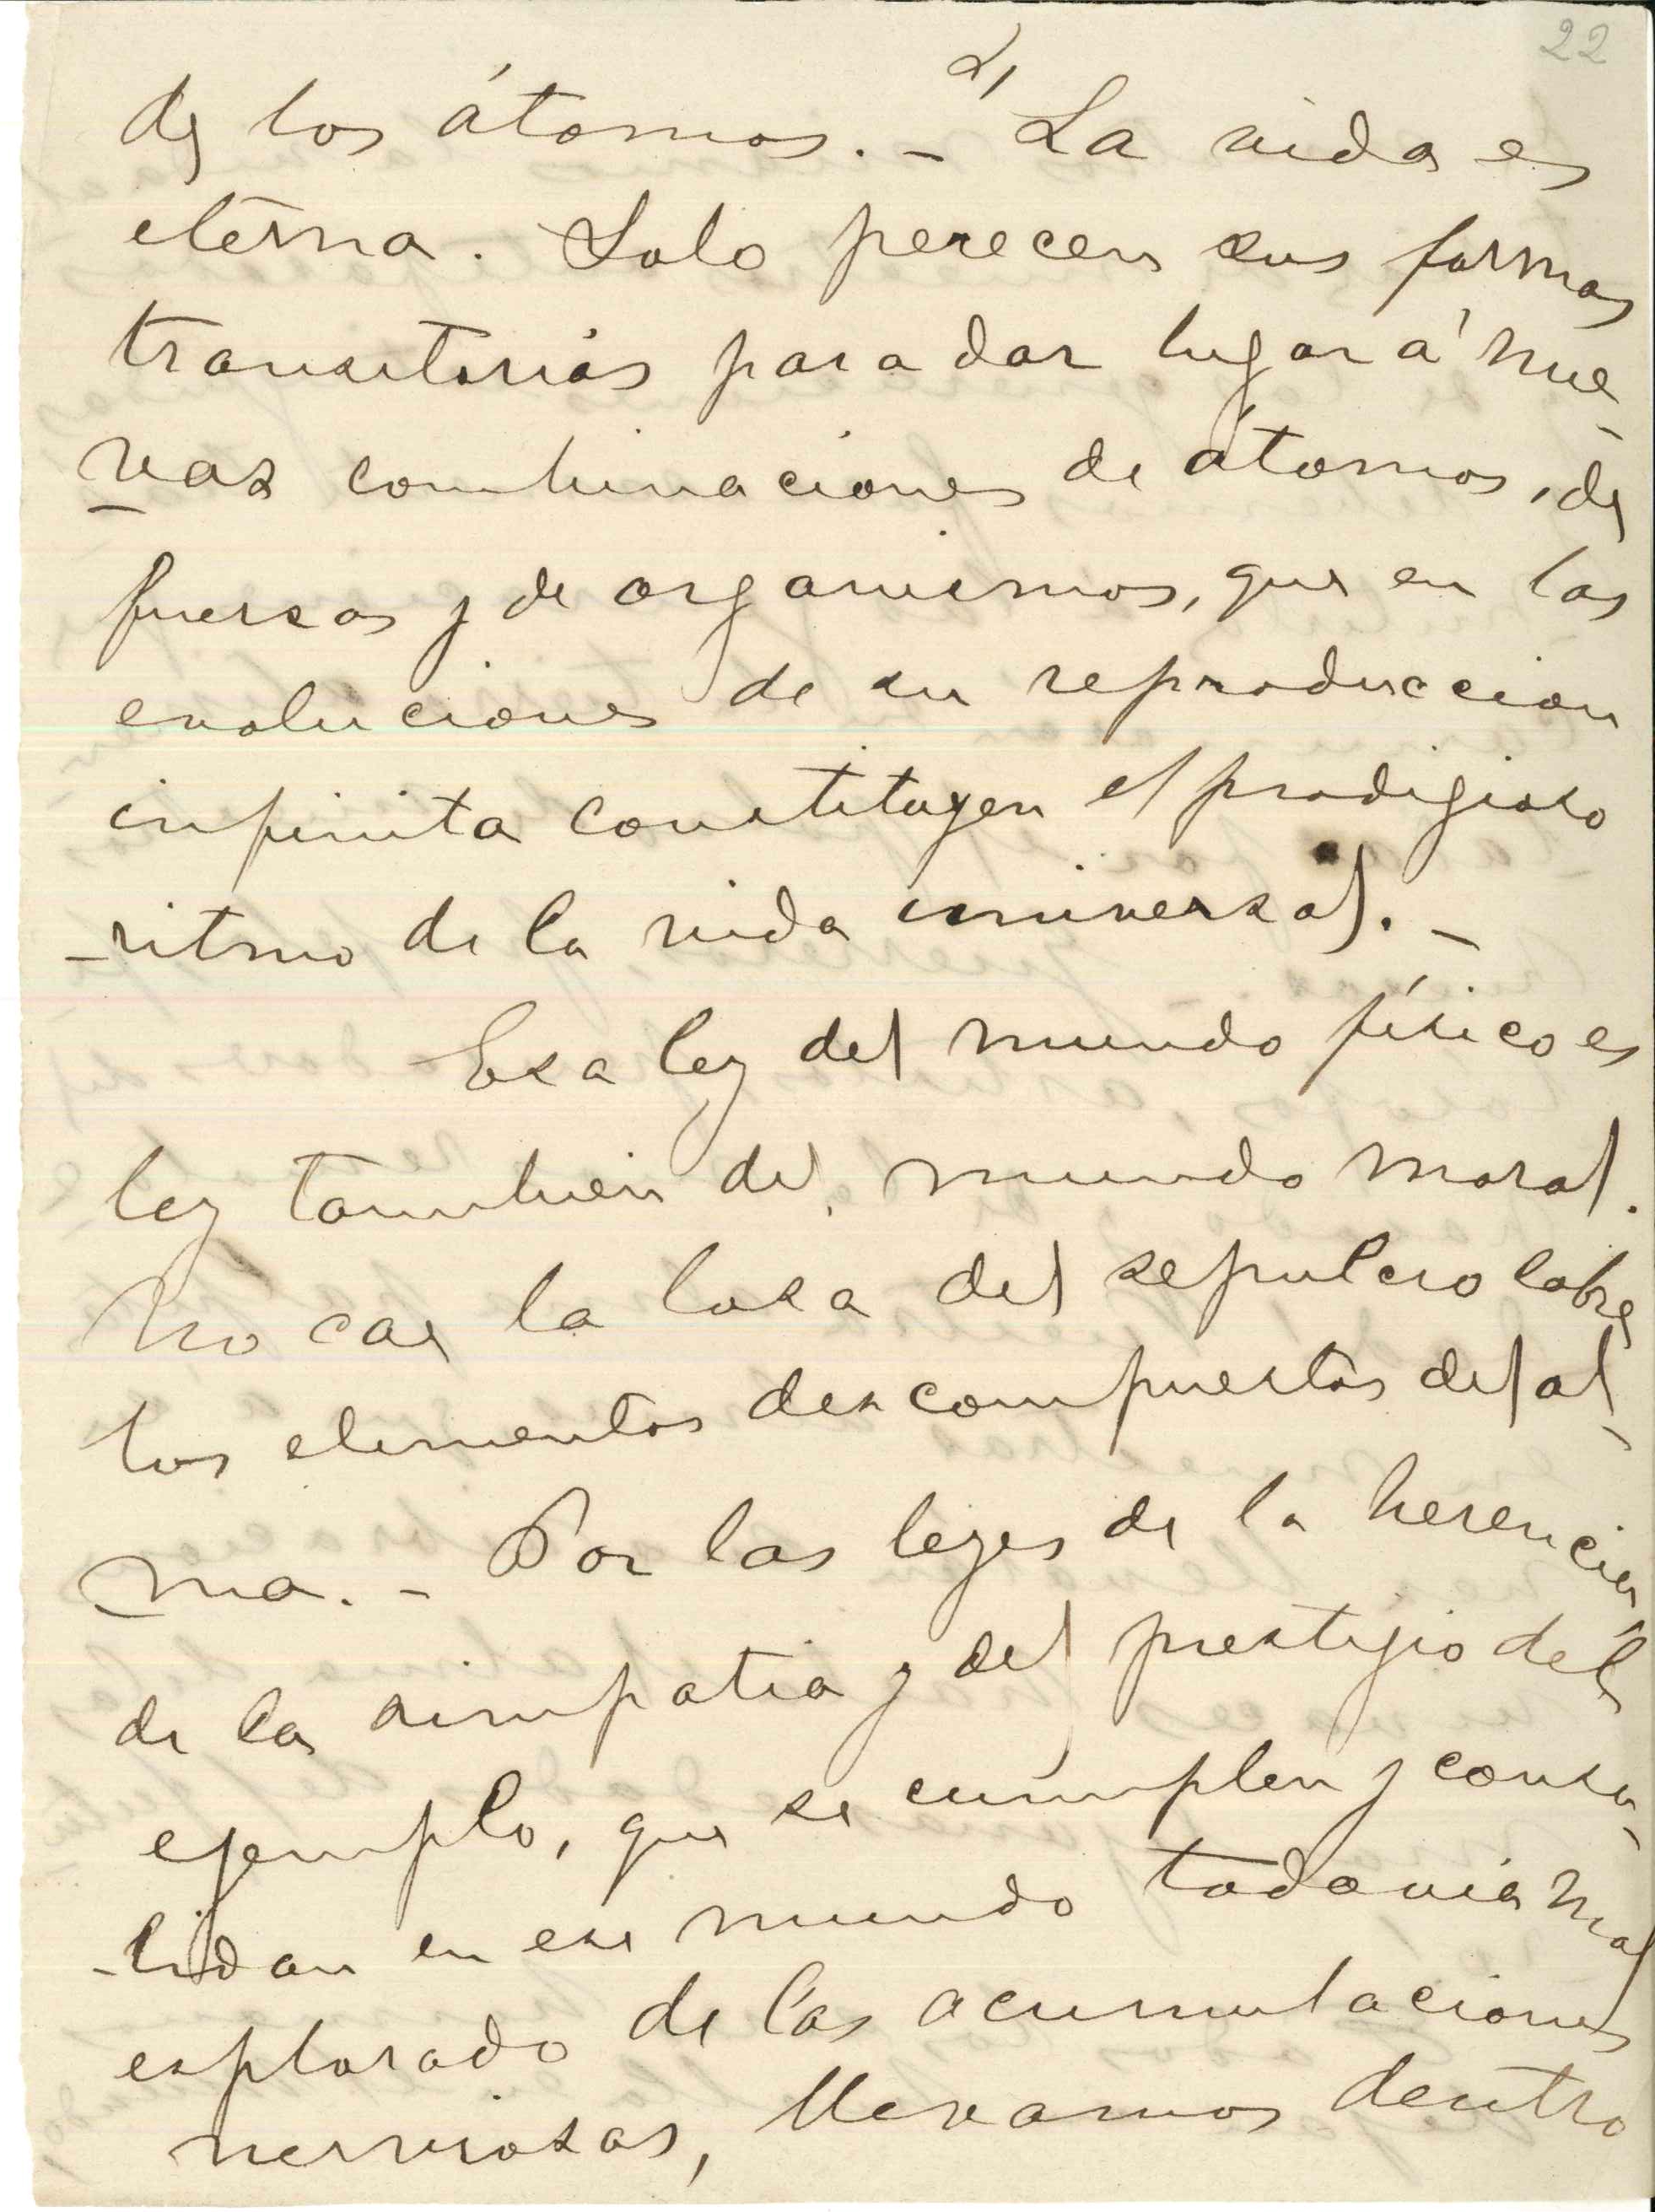 22
2,
de los átomos. – La vida es
eterna. Solo perecen sus formas
transitorias para dar lugar á nue-
-vas combinaciones de átomos, de
fuersas y de organismos, que en las
evoluciones de su reproduccion
infinita constituyen el prodigioso
-ritmo de la vida universal. –
Esa ley del mundo físico es
ley tambien del mundo moral.
No cae la losa del sepulcro sobre
los elementos descompuestos del al-
-ma. – Por las leyes de la herencia,
de la simpatia y del prestigio del
ejemplo, que se cumplen y conso-
-lidan en ese mundo todavia mal
esplorado de las acumulaciones
nerviosas, llevamos dentro